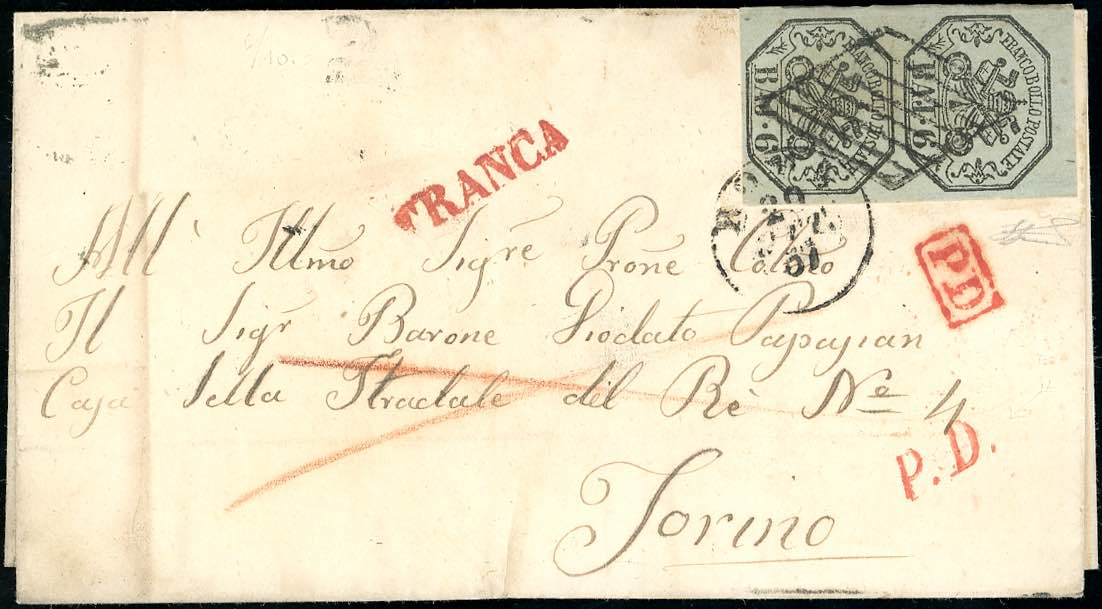 FRANCO BOLLO POSTALE
BAJ. 6
FRANCO BOLLO POSTALE
BAJ. 6
FRANCA
P.D.
All' Illmo Sigre Prone Colmo
Il Sigr Barone Diodato Papajian
Casa Sella Stradale del Rè No 4
P.D.
Torino